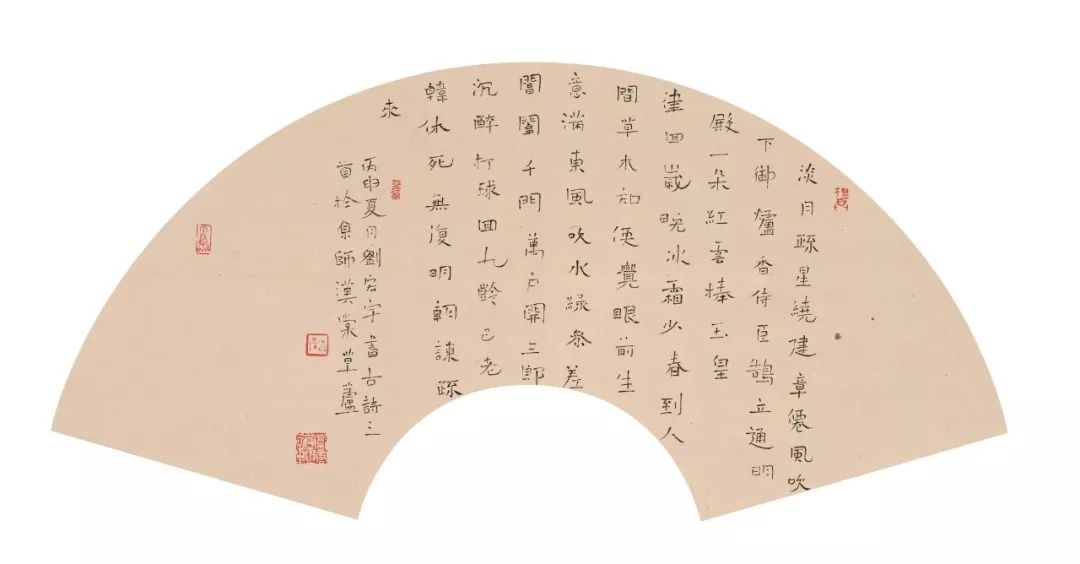 淡月疏星繞建章僊風吹
下御爐香侍臣鵠立通明
殿一朵紅雲捧玉皇
律回歲晚冰霜少春到人
間草木知便覺眼前生
意滿東風吹水綠參差
閶闔千門萬戶開三郎
沉醉打球回九齡已老
韓休死無復明朝諫疏
來
丙申夏月劉宏宇書古詩三
首於京師漢棠草蘆